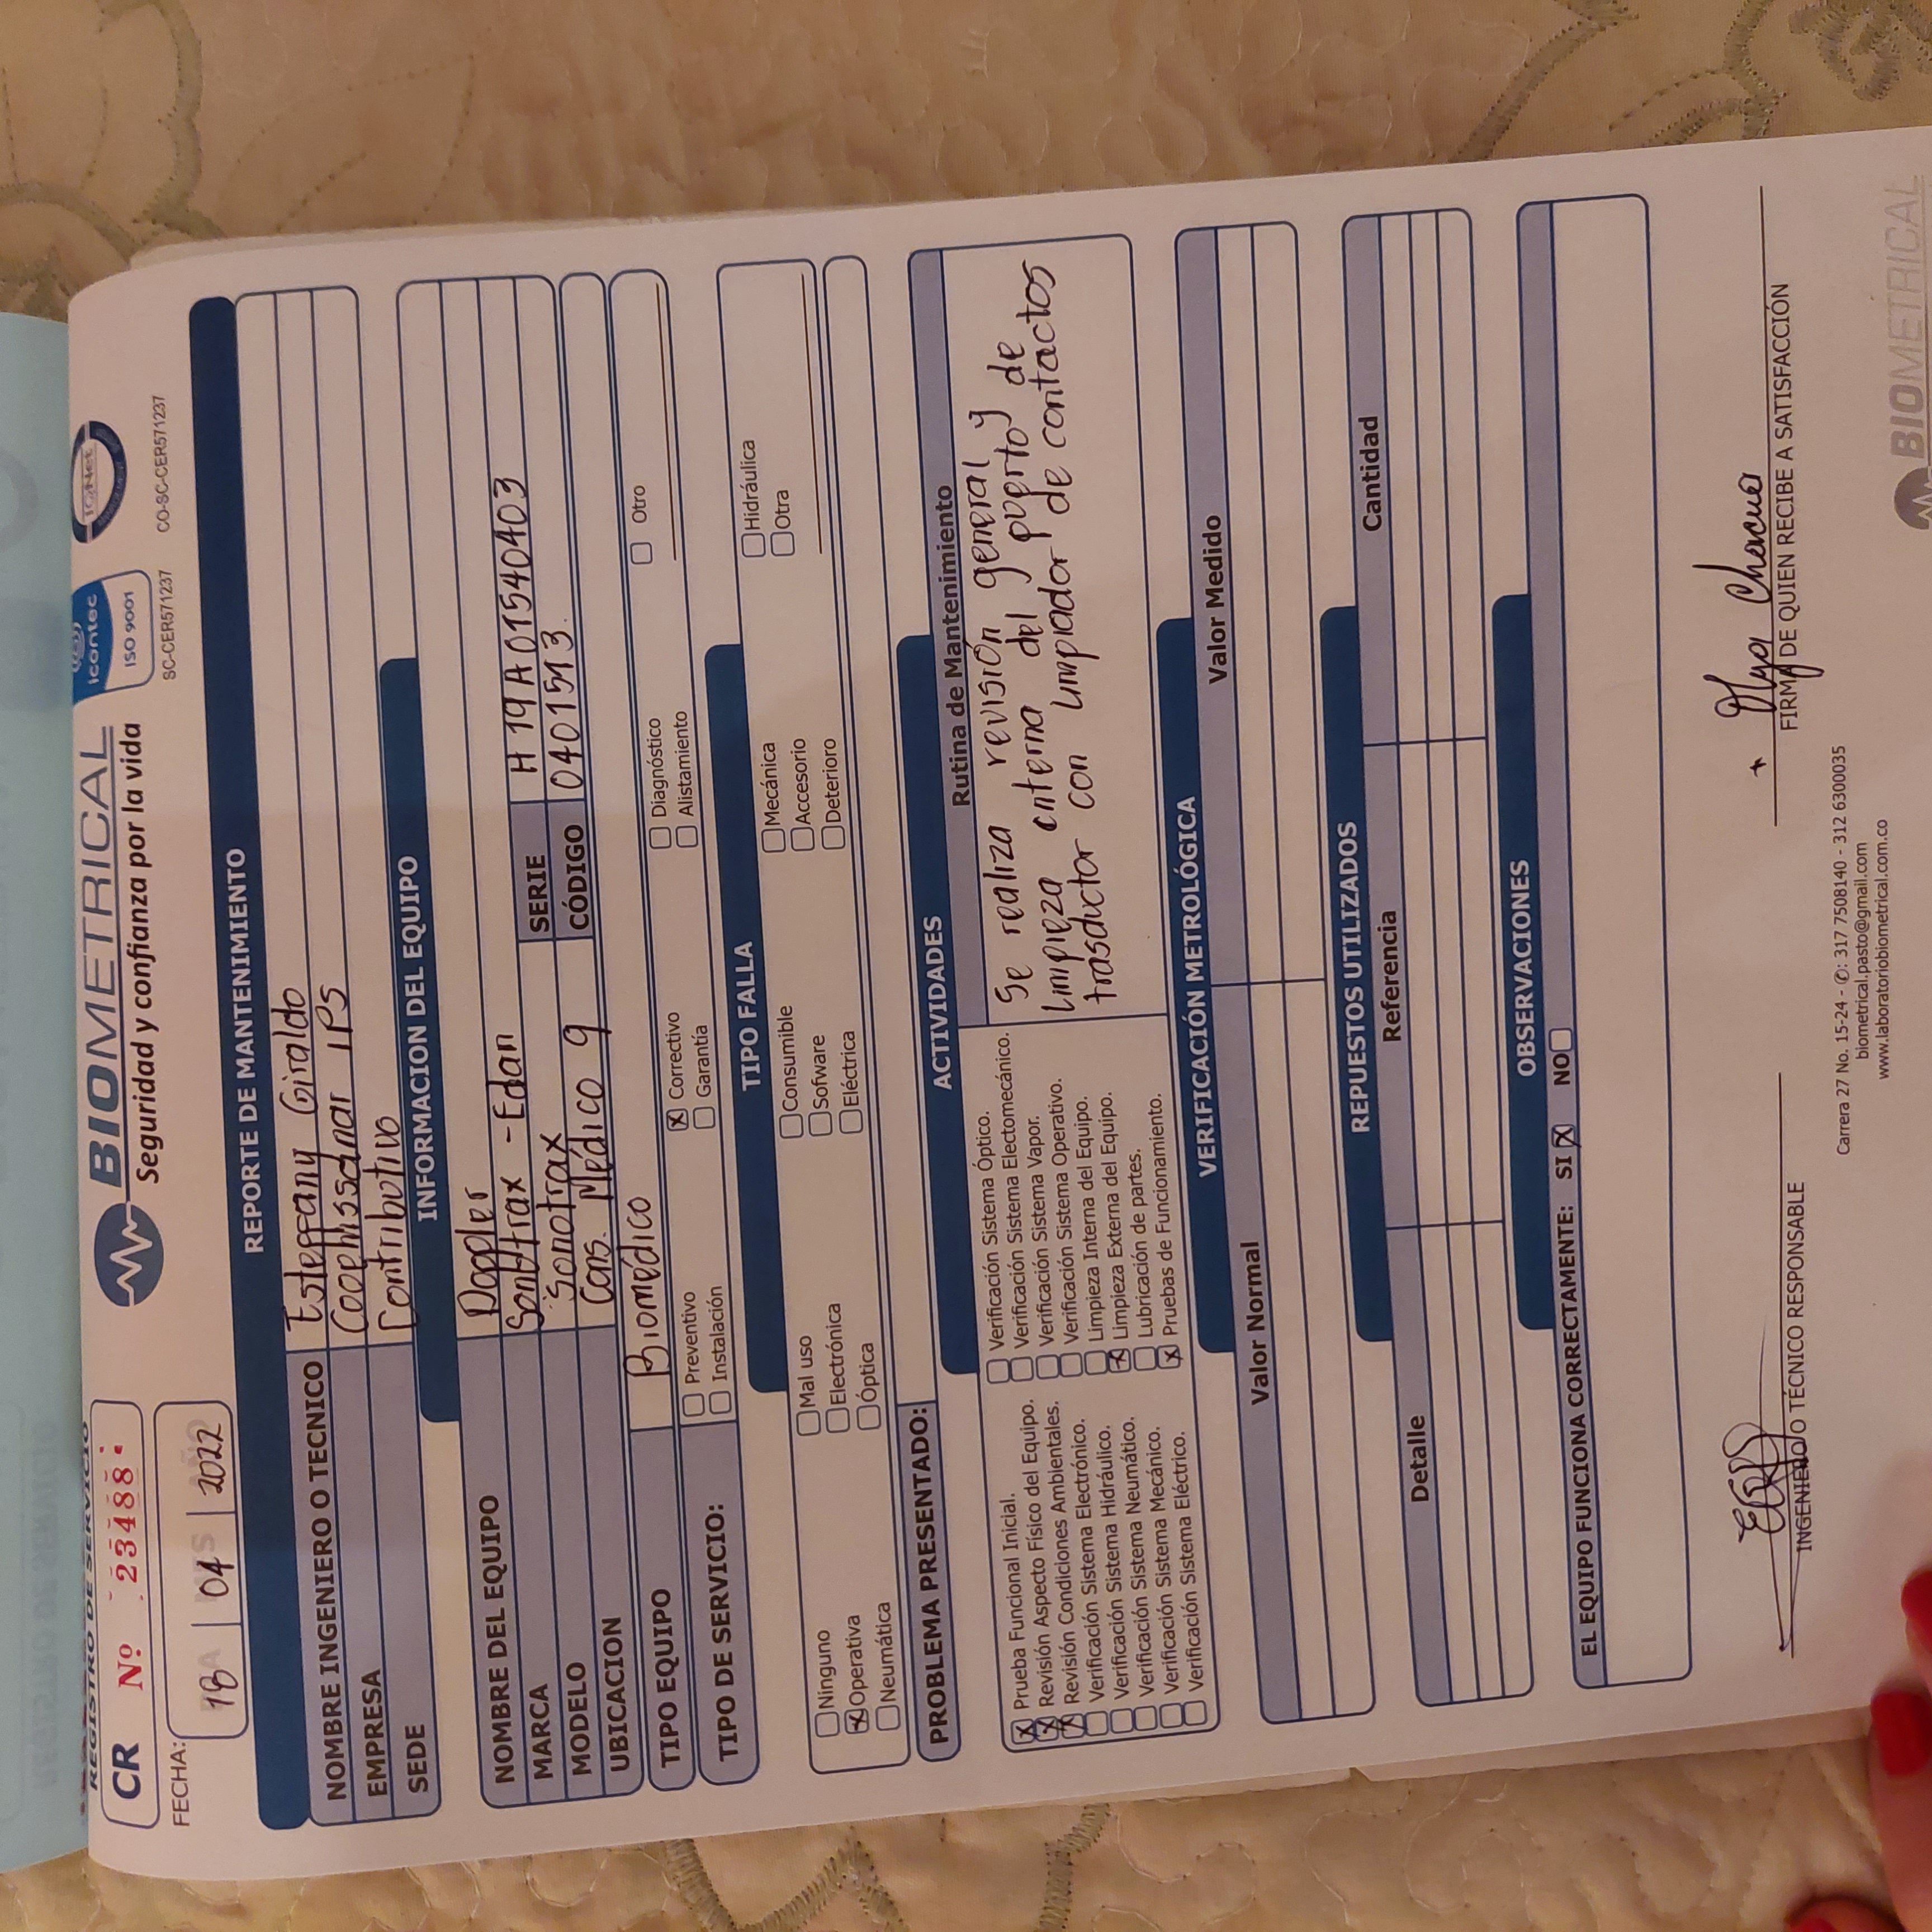 REGISTRO DE SERVICIO
CR Nº 23488
BIOMETRICAL
Seguridad y confianza por la vida
icontec
ISO 9001
SC-CER571237
IQNet
CO-SC-CER571237
FECHA: 18 04 2022
REPORTE DE MANTENIMIENTO
NOMBRE INGENIERO O TECNICO Esteffany Giraldo
EMPRESA Coophissanar IPS
SEDE Contributivo
INFORMACION DEL EQUIPO
NOMBRE DEL EQUIPO Doppler
MARCA Sonotrax - Edan
MODELO Sonotrax SERIE H19A01540403
UBICACION Cons. Médico 9 CÓDIGO 0401513.
TIPO EQUIPO Biomédico
TIPO DE SERVICIO: Preventivo Correctivo Diagnóstico Otro
Instalación Garantía Alistamiento
TIPO FALLA
Ninguno Mal uso Consumible Mecánica Hidráulica
Operativa Electrónica Sofware Accesorio Otra
Neumática Óptica Eléctrica Deterioro
PROBLEMA PRESENTADO:
ACTIVIDADES
Prueba Funcional Inicial.
Revisión Aspecto Físico del Equipo.
Revisión Condiciones Ambientales.
Verificación Sistema Electrónico.
Verificación Sistema Hidráulico.
Verificación Sistema Neumático.
Verificación Sistema Mecánico.
Verificación Sistema Eléctrico.
Verificación Sistema Óptico.
Verificación Sistema Electomecánico.
Verificación Sistema Vapor.
Verificación Sistema Operativo.
Limpieza Interna del Equipo.
Limpieza Externa del Equipo.
Lubricación de partes.
Pruebas de Funcionamiento.
Rutina de Mantenimiento
Se realiza revisión general y
limpieza interna del puerto de
trasductor con limpiador de contactos
VERIFICACIÓN METROLÓGICA
Valor Normal Valor Medido
REPUESTOS UTILIZADOS
Detalle Referencia Cantidad
OBSERVACIONES
EL EQUIPO FUNCIONA CORRECTAMENTE: SI NO
Olga Chacua
INGENIERO O TÉCNICO RESPONSABLE
FIRMA DE QUIEN RECIBE A SATISFACCIÓN
Carrera 27 No. 15-24 - ✆: 317 7508140 - 312 6300035
biometrical.pasto@gmail.com
www.laboratoriobiometrical.com.co
BIOMETRICAL